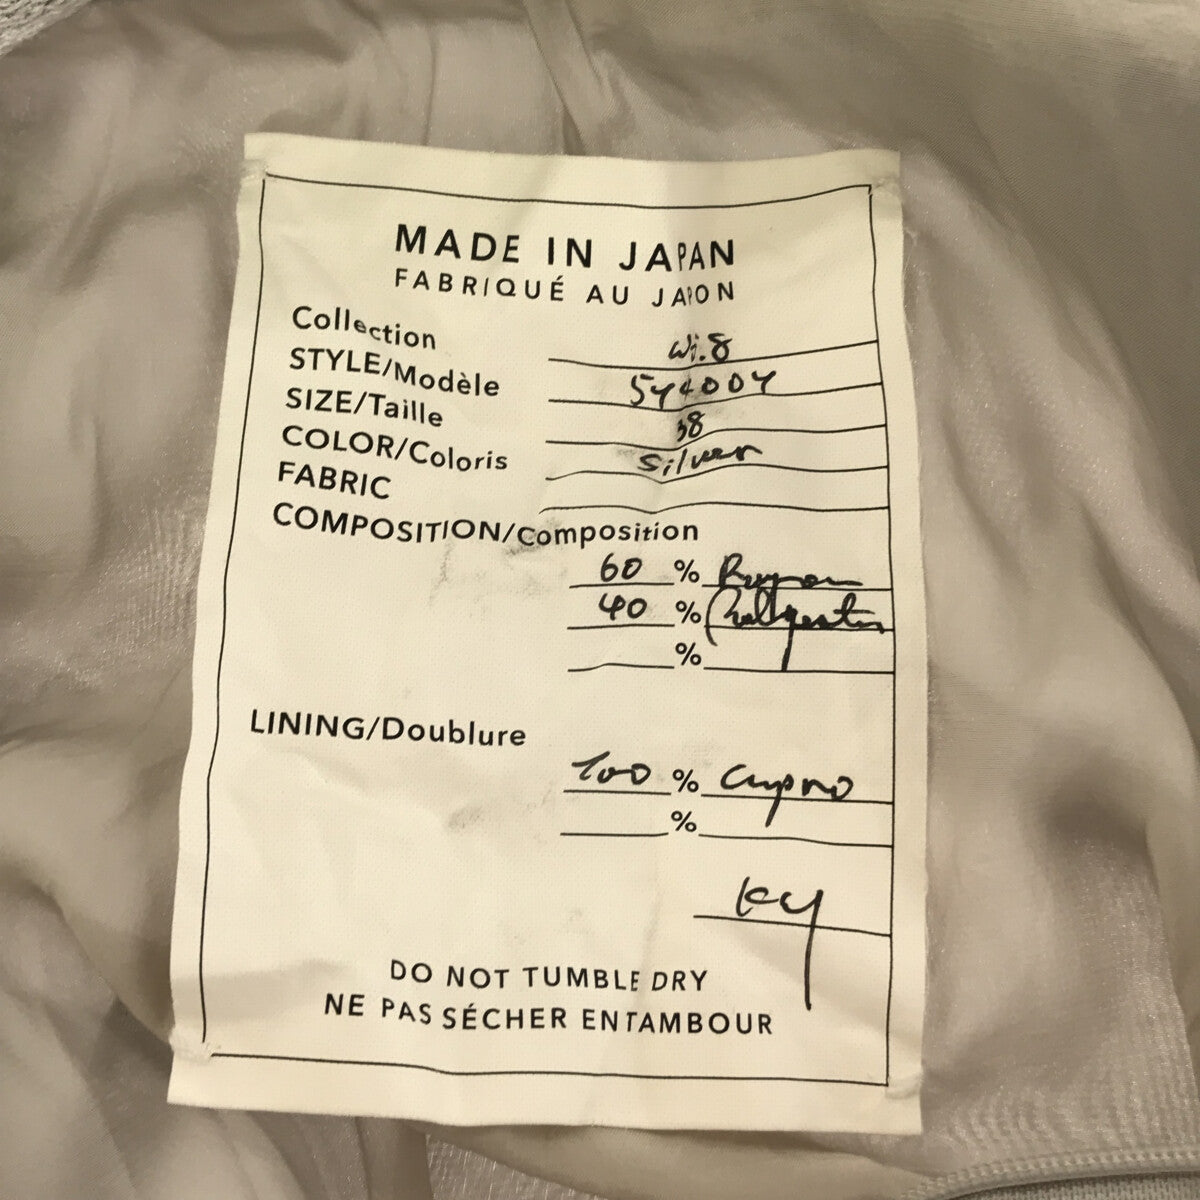 MADE IN JAPAN
FABRIQUÉ AU JAPON
Collection Wi.8
STYLE/Modèle
SIZE/Taille 38
COLOR/Coloris Silver
FABRIC
COMPOSITION/Composition
60 % Rayon
40 %
%
LINING/Doublure
100 % Cupro
%
DO NOT TUMBLE DRY
NE PAS SÉCHER EN TAMBOUR